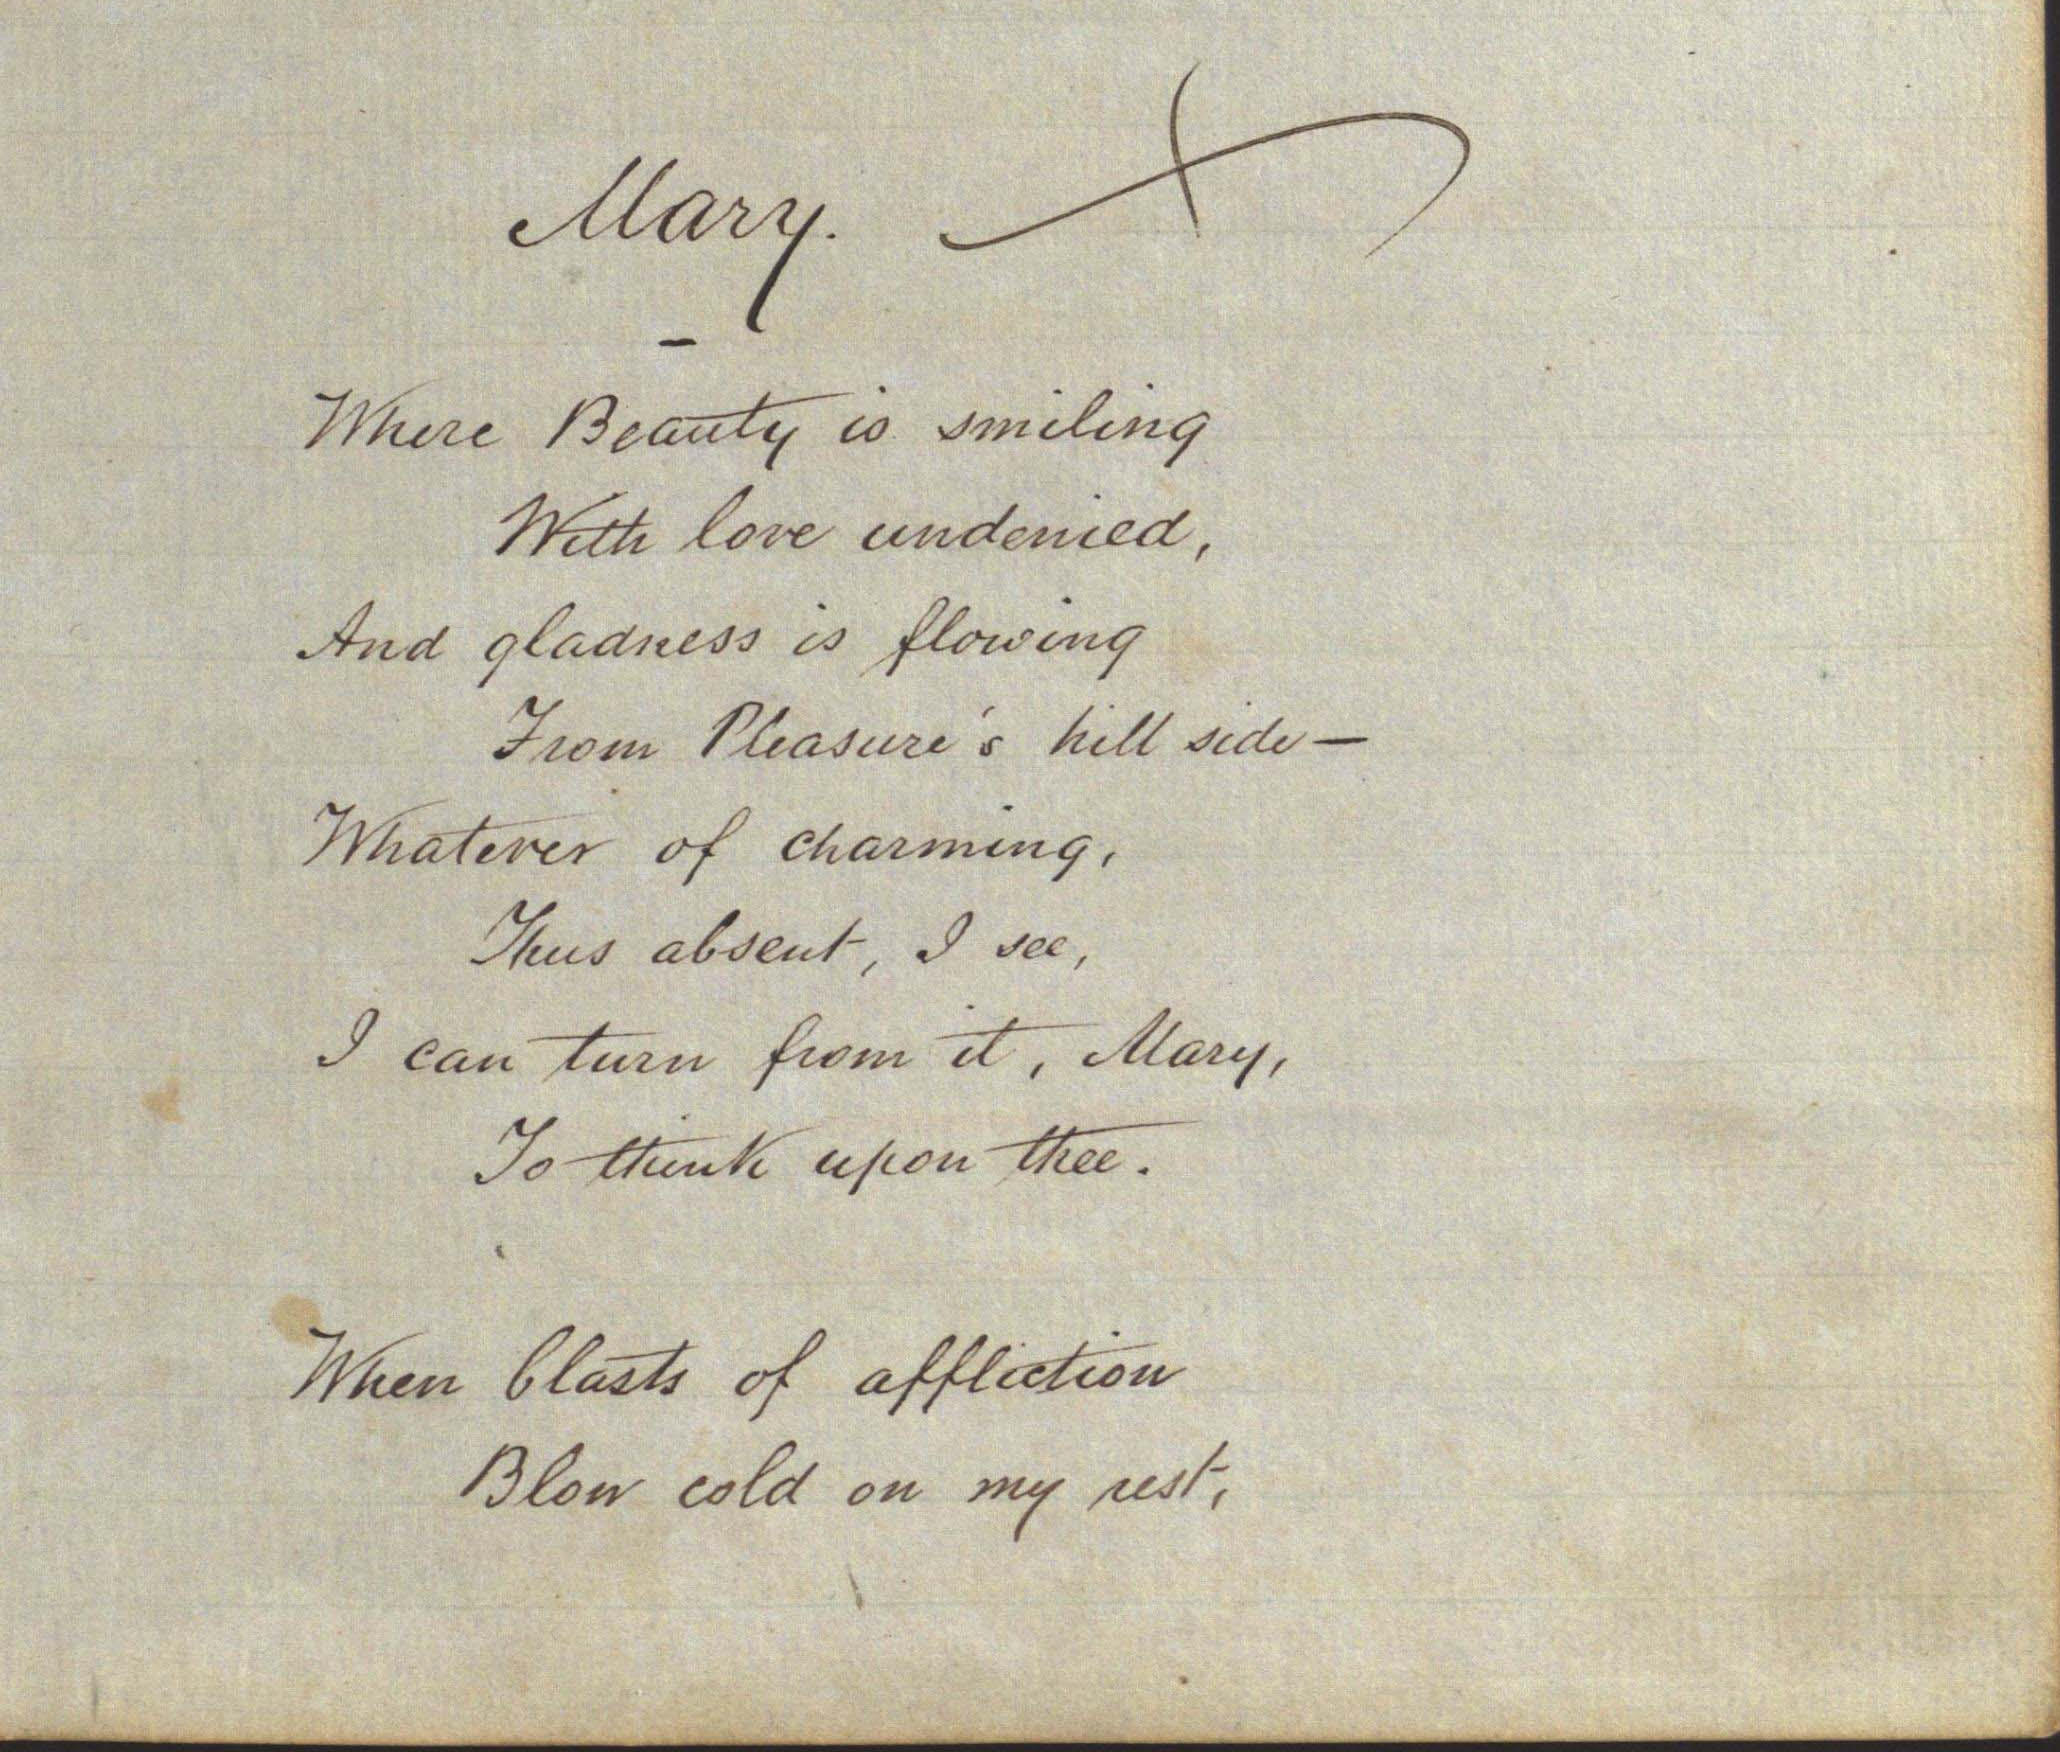 Mary.
Where Beauty is smiling
With love undenied,
And gladness is flowing
From Pleasure's hill side—
Whatever of charming,
Thus absent, I see,
I can turn from it, Mary,
To think upon thee.
When blasts of affliction
Blow cold on my rest,